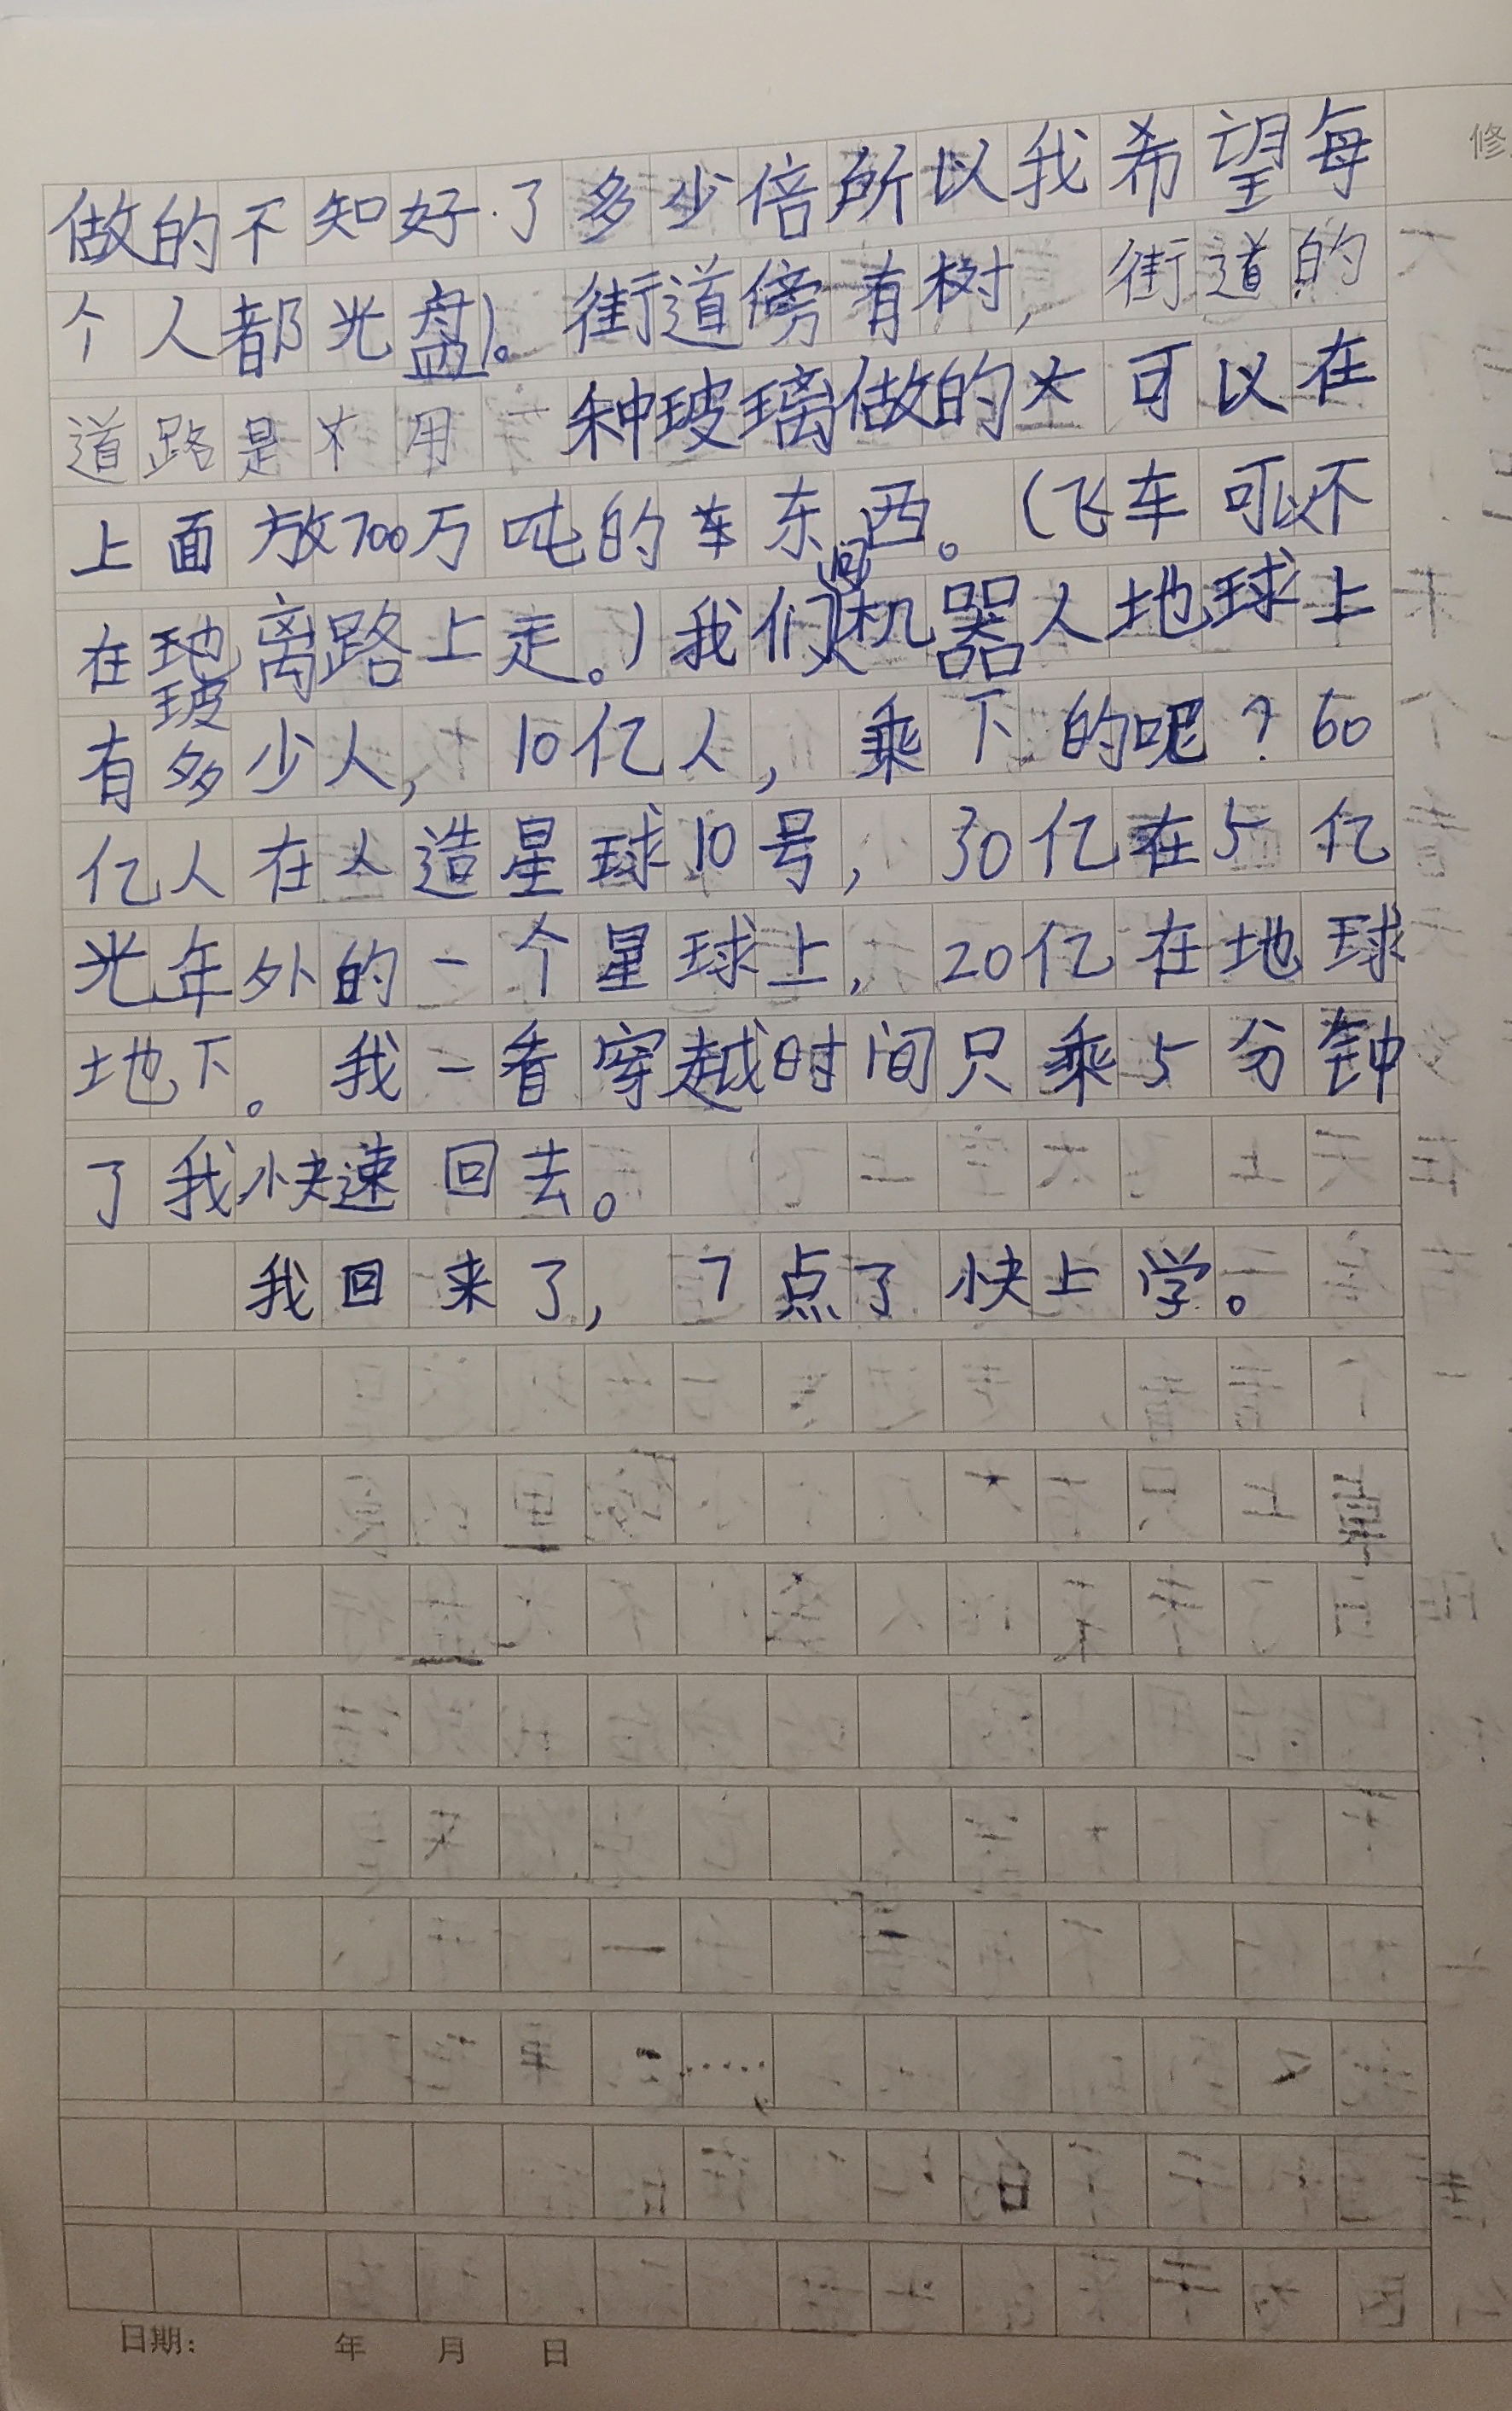 修
做的不知好了多少倍所以我希望每
个人都光盘)。街道傍有树，街道的
道路是用一种玻璃做的 可以在
上面放700万吨的东西。(飞车可以不
在玻离路上走。)我们问机器人地球上
有多少人，10亿人，乘下的呢？60
亿人在人造星球10号，30亿在5亿
光年外的一个星球上，20亿在地球
地下。我一看穿越时间只乘5分钟
了我快速回去。
我回来了，7点了快上学。
日期： 年 月 日